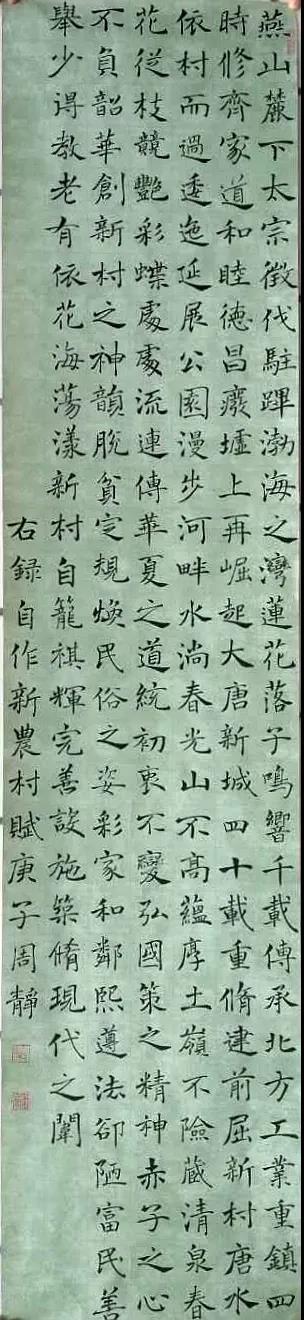 燕山麓下太宗徵伐駐蹕渤海之灣蓮花落子鳴響千載傳承北方工業重鎮四
時修齊家道和睦德昌癈墟上再崛起大唐新城四十載重脩建前屈新村唐水
依村而過逶迤延展公園漫步河畔水淌春光山不高蘊厚土嶺不險蔵清泉春
花從枝競艷彩蝶處處流連傳華夏之道統初衷不變弘國策之精神赤子之心
不負韶華創新村之神韻脫貧定規煥民俗之姿彩家和鄰熙遵法卻陋富民善
舉少得教老有依花海蕩漾新村自籠祺輝完善設施築脩現代之闈
右録自作新農村賦庚子周靜